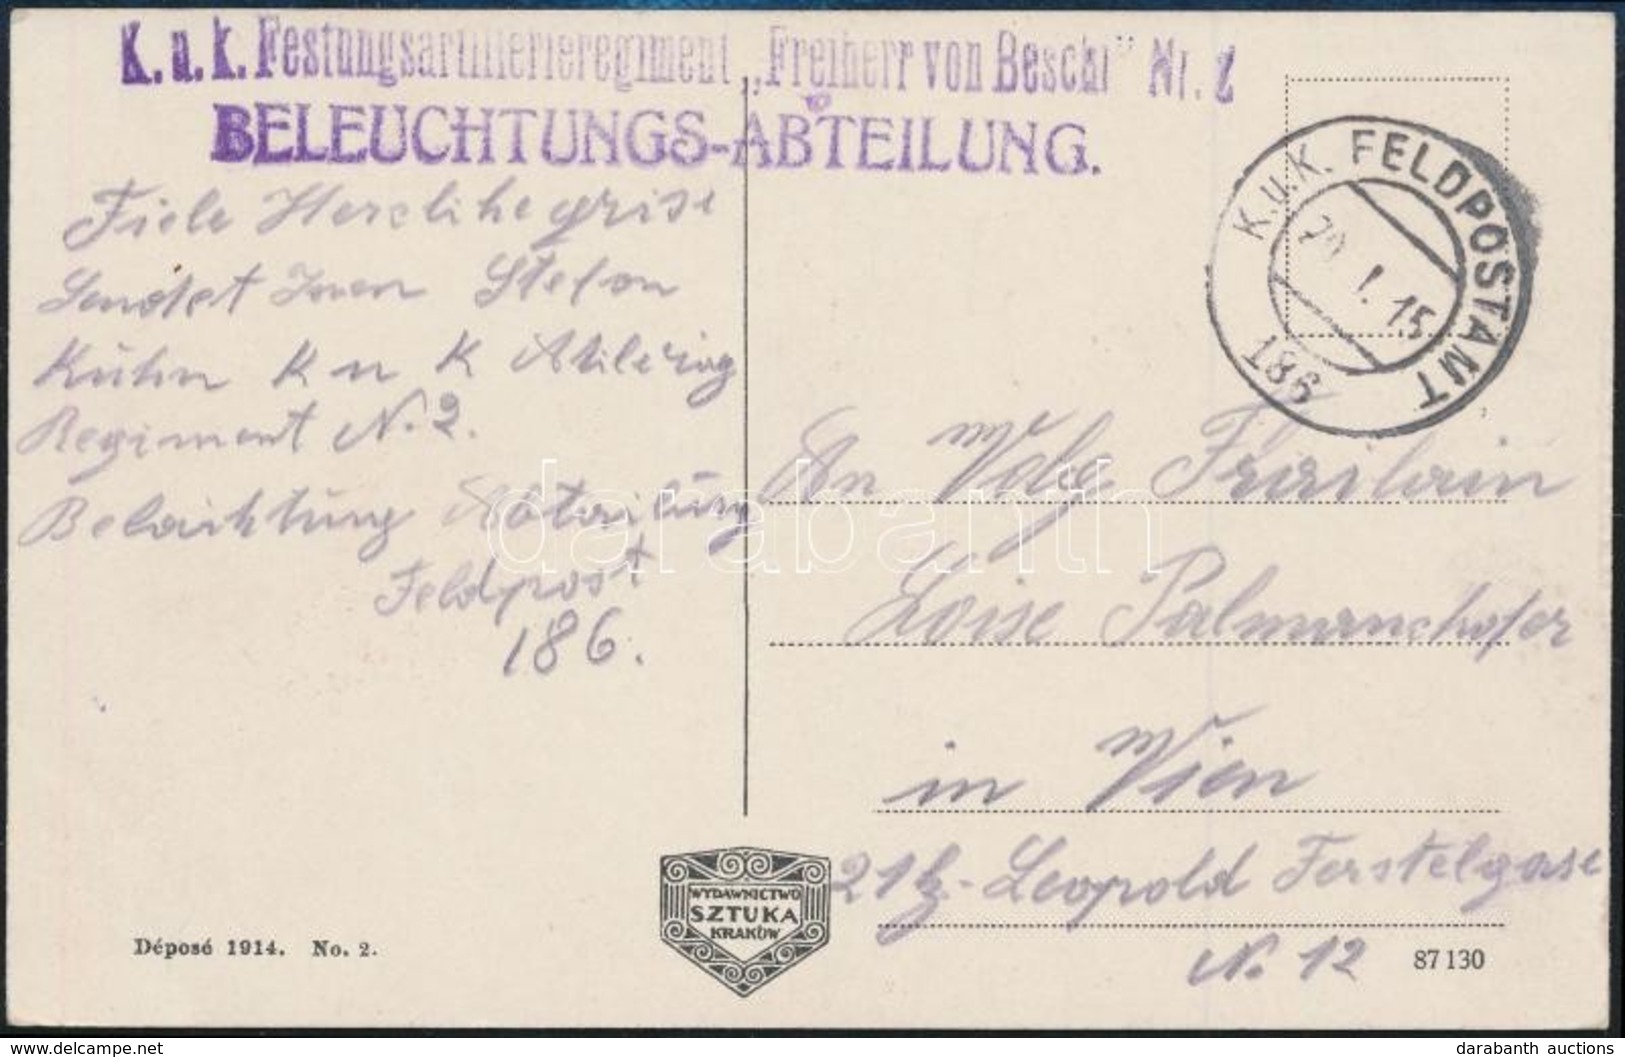 K.u.k. Festungsartillerieregiment „Freiherr von Beschi" Nr. 2
BELEUCHTUNGS-ABTEILUNG.
K.u.K. FELDPOSTAMT
29. I. 15
186
Fiele Herzlihe grise
Sendet Inen Stefan
Kühn K u K Atilerieg
Regiment N. 2.
Belaichtung Abtailung
Feldpost
186.
An Wolg Freilain
Loise Palmanshofer
in Wien
21 bz. Leopold Ferstelgase
N. 12
WYDAWNICTWO
SZTUKA
KRAKÓW
Déposé 1914. No. 2.
87130
darabanth
delcampe.net
darabanth auctions